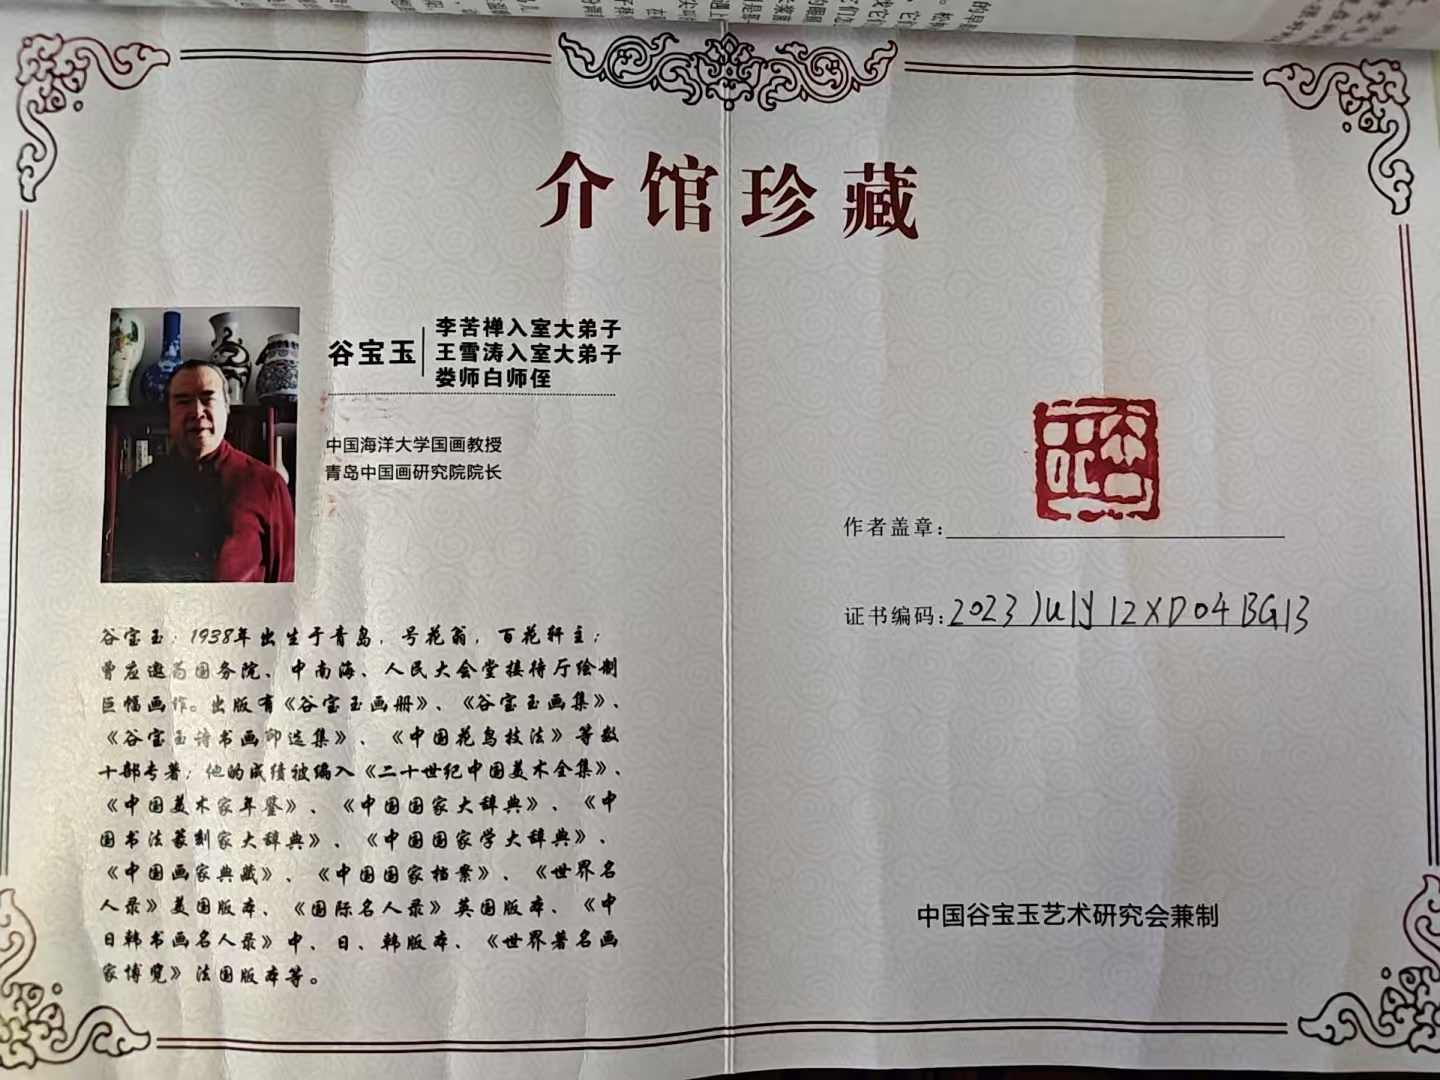 介馆珍藏
谷宝玉
李苦禅入室大弟子
王雪涛入室大弟子
娄师白师侄
中国海洋大学国画教授
青岛中国画研究院院长
谷宝玉：1938年出生于青岛，号花翁，百花轩主；
曾应邀为国务院、中南海、人民大会堂接待厅绘制
巨幅画作。出版有《谷宝玉画册》、《谷宝玉画集》、
《谷宝玉诗书画印选集》、《中国花鸟技法》等数
十部专著；他的成绩被编入《二十世纪中国美术全集》、
《中国美术家年鉴》、《中国国家大辞典》、《中
国书法篆刻家大辞典》、《中国国家学大辞典》、
《中国画家典藏》、《中国国家档案》、《世界名
人录》美国版本、《国际名人录》英国版本、《中
日韩书画名人录》中、日、韩版本、《世界著名画
家博览》法国版本等。
作者盖章：
证书编码：2023July12XD04BG13
中国谷宝玉艺术研究会兼制